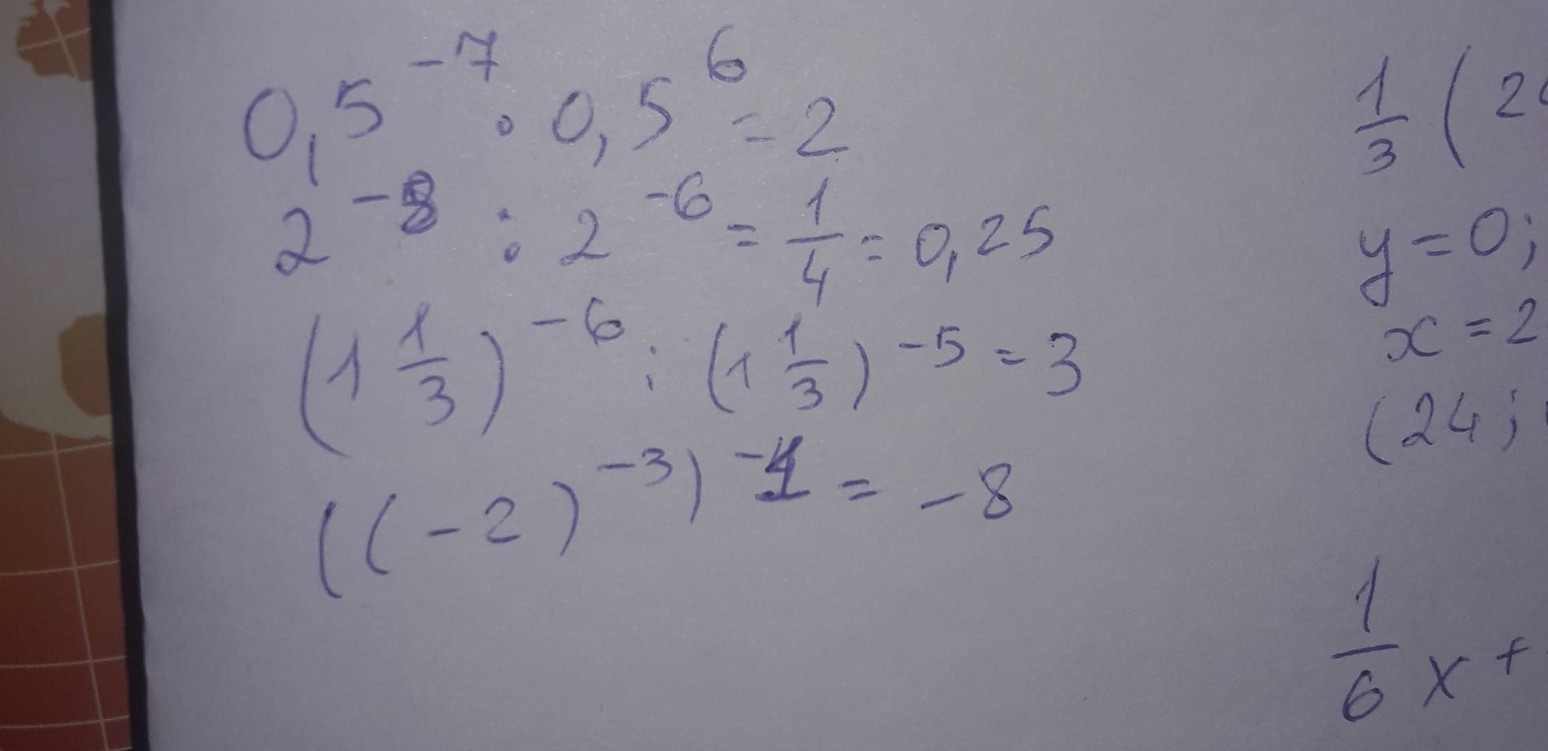 0,5^{-7} · 0,5^{6} = 2
2^{-8} : 2^{-6} = 1/4 = 0,25
(1 1/3)^{-6} : (1 1/3)^{-5} = 3
((-2)^{-3})^{-1} = -8
1/3 (2
y = 0;
x = 2
(24;
1/6 x +